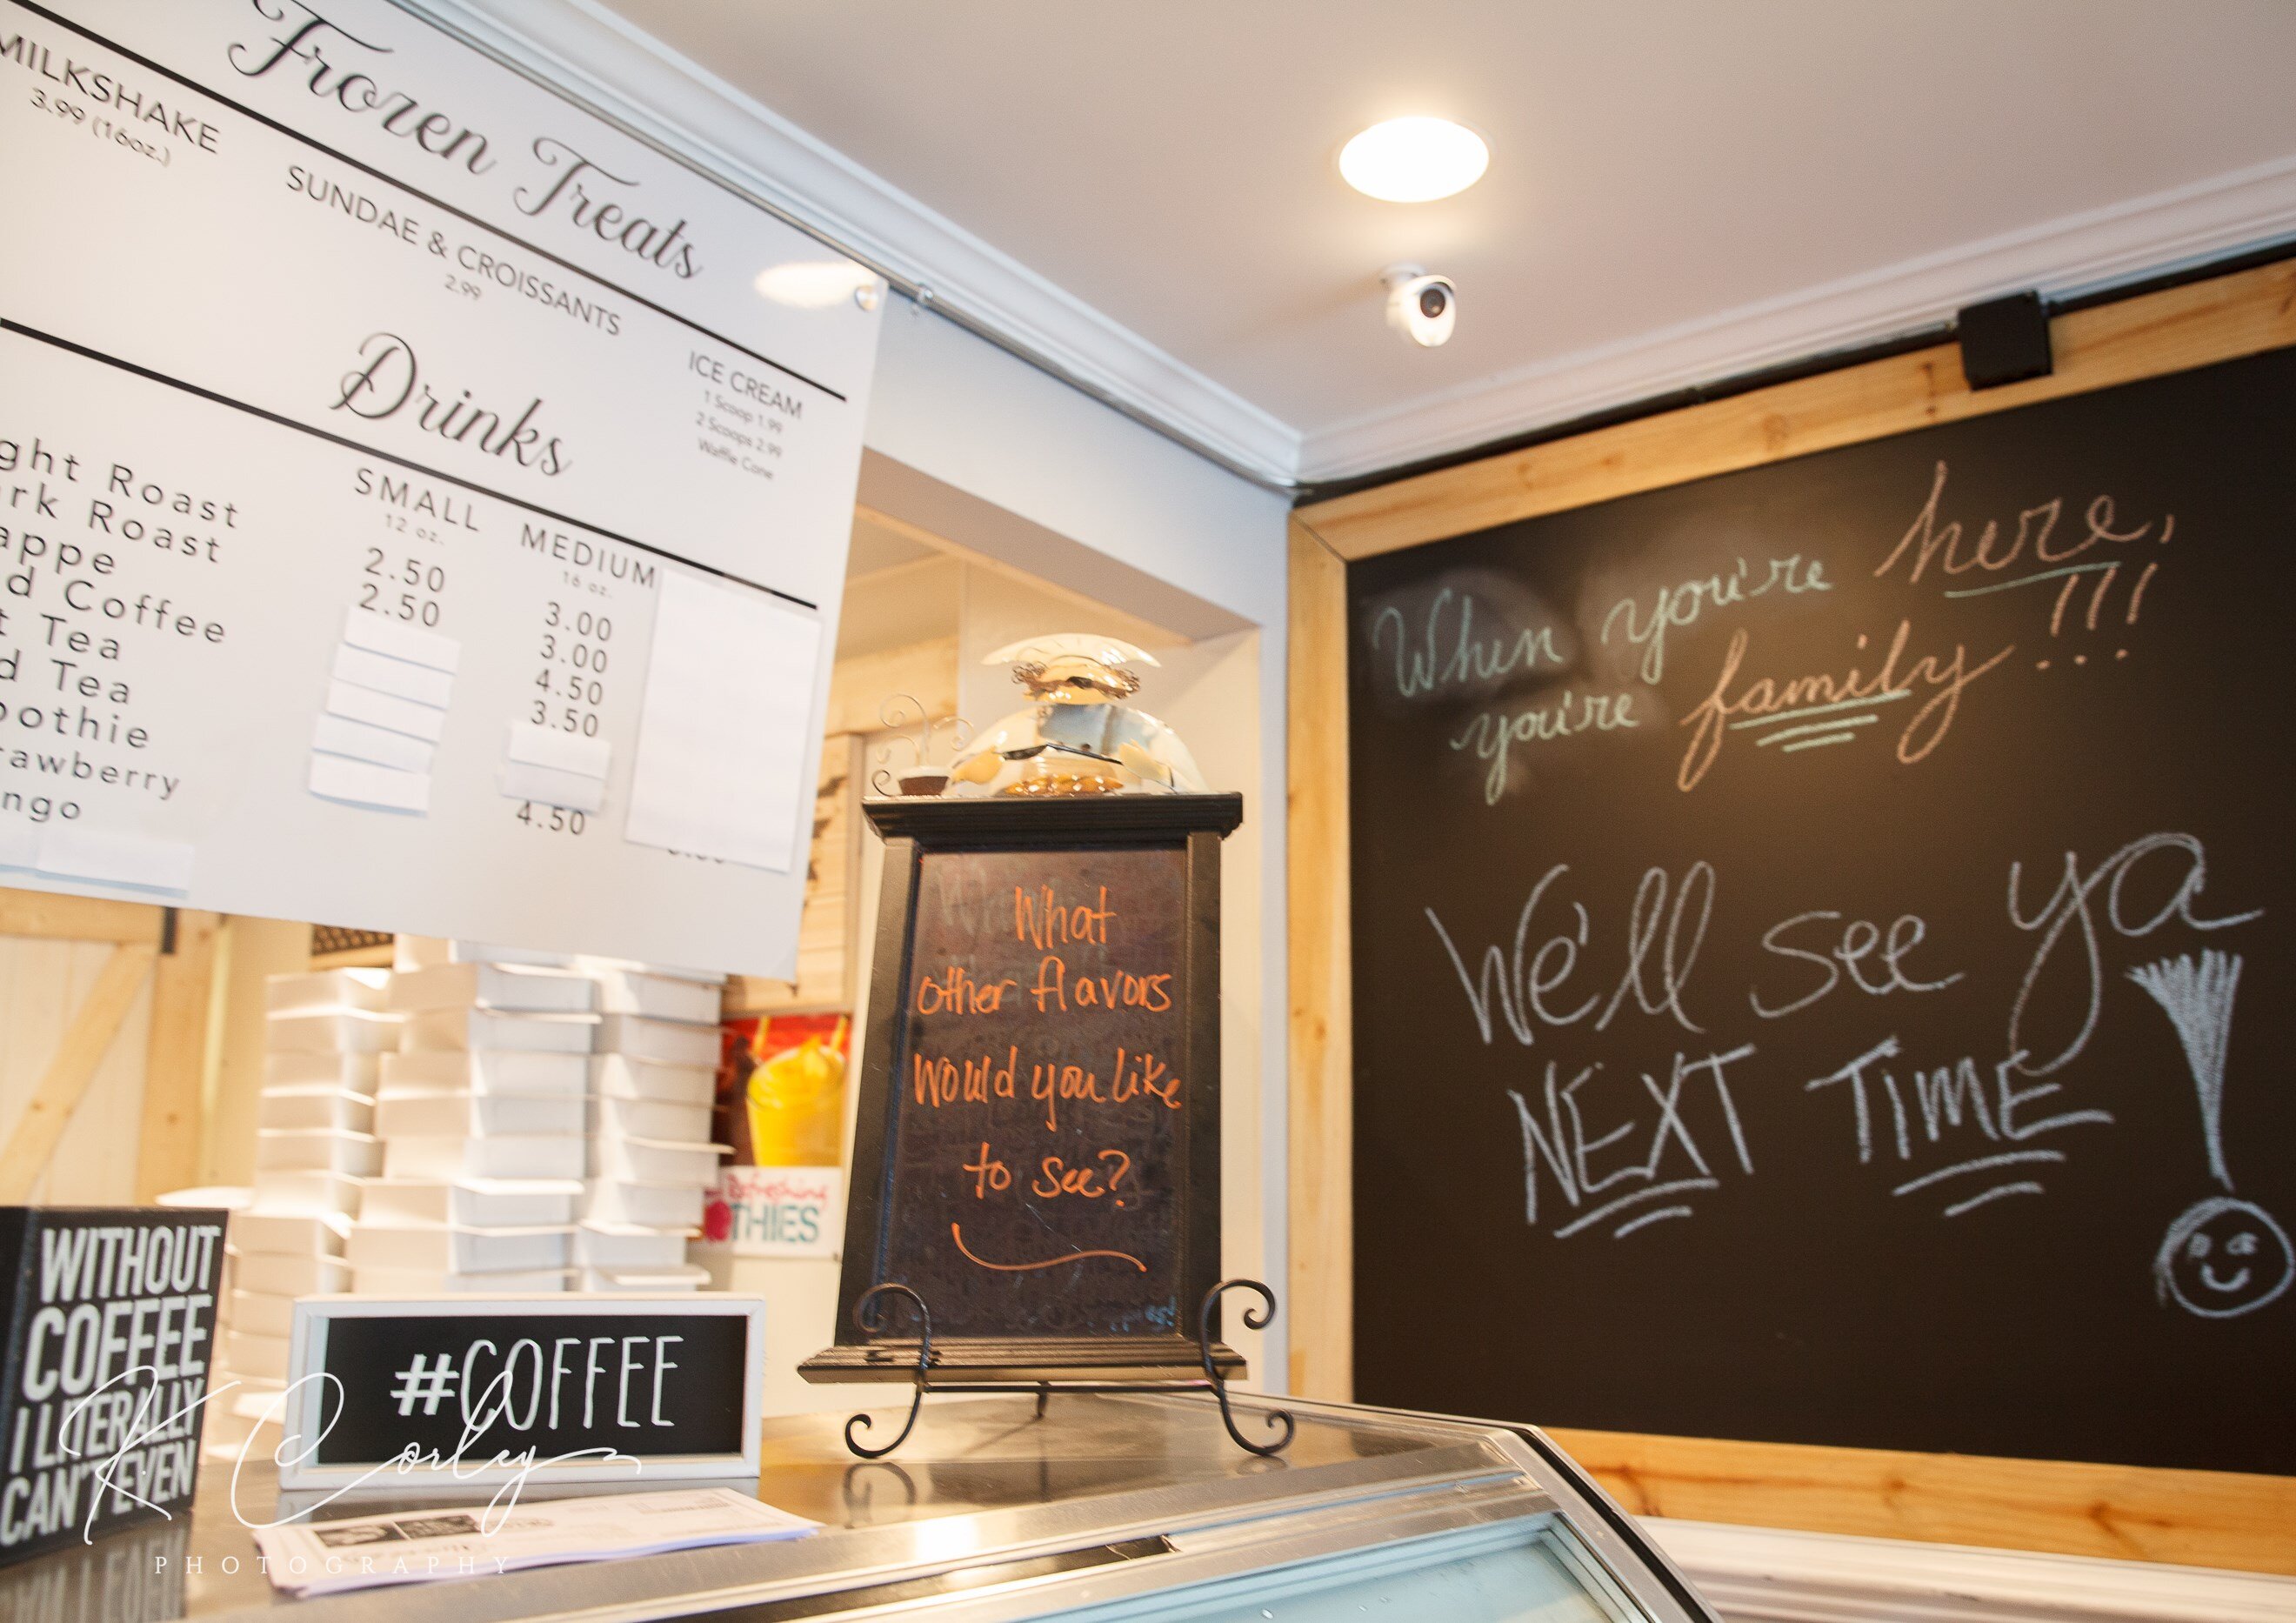 Frozen Treats
MILKSHAKE
3.99 (16oz.)
SUNDAE & CROISSANTS
2.99
ICE CREAM
1 Scoop 1.99
2 Scoops 2.99
Waffle Cone
Drinks
SMALL
12 oz.
MEDIUM
16 oz.
ght Roast 2.50 3.00
rk Roast 2.50 3.00
appe 4.50
d Coffee 3.50
t Tea
d Tea
oothie 4.50
rawberry
ngo
What
other flavors
would you like
to see?
When you're here,
you're family!!!
We'll see ya
NEXT TIME!
Refreshing
THIES
WITHOUT
COFFEE
I LITERALLY
CAN'T EVEN
#COFFEE
K. Corley
PHOTOGRAPHY